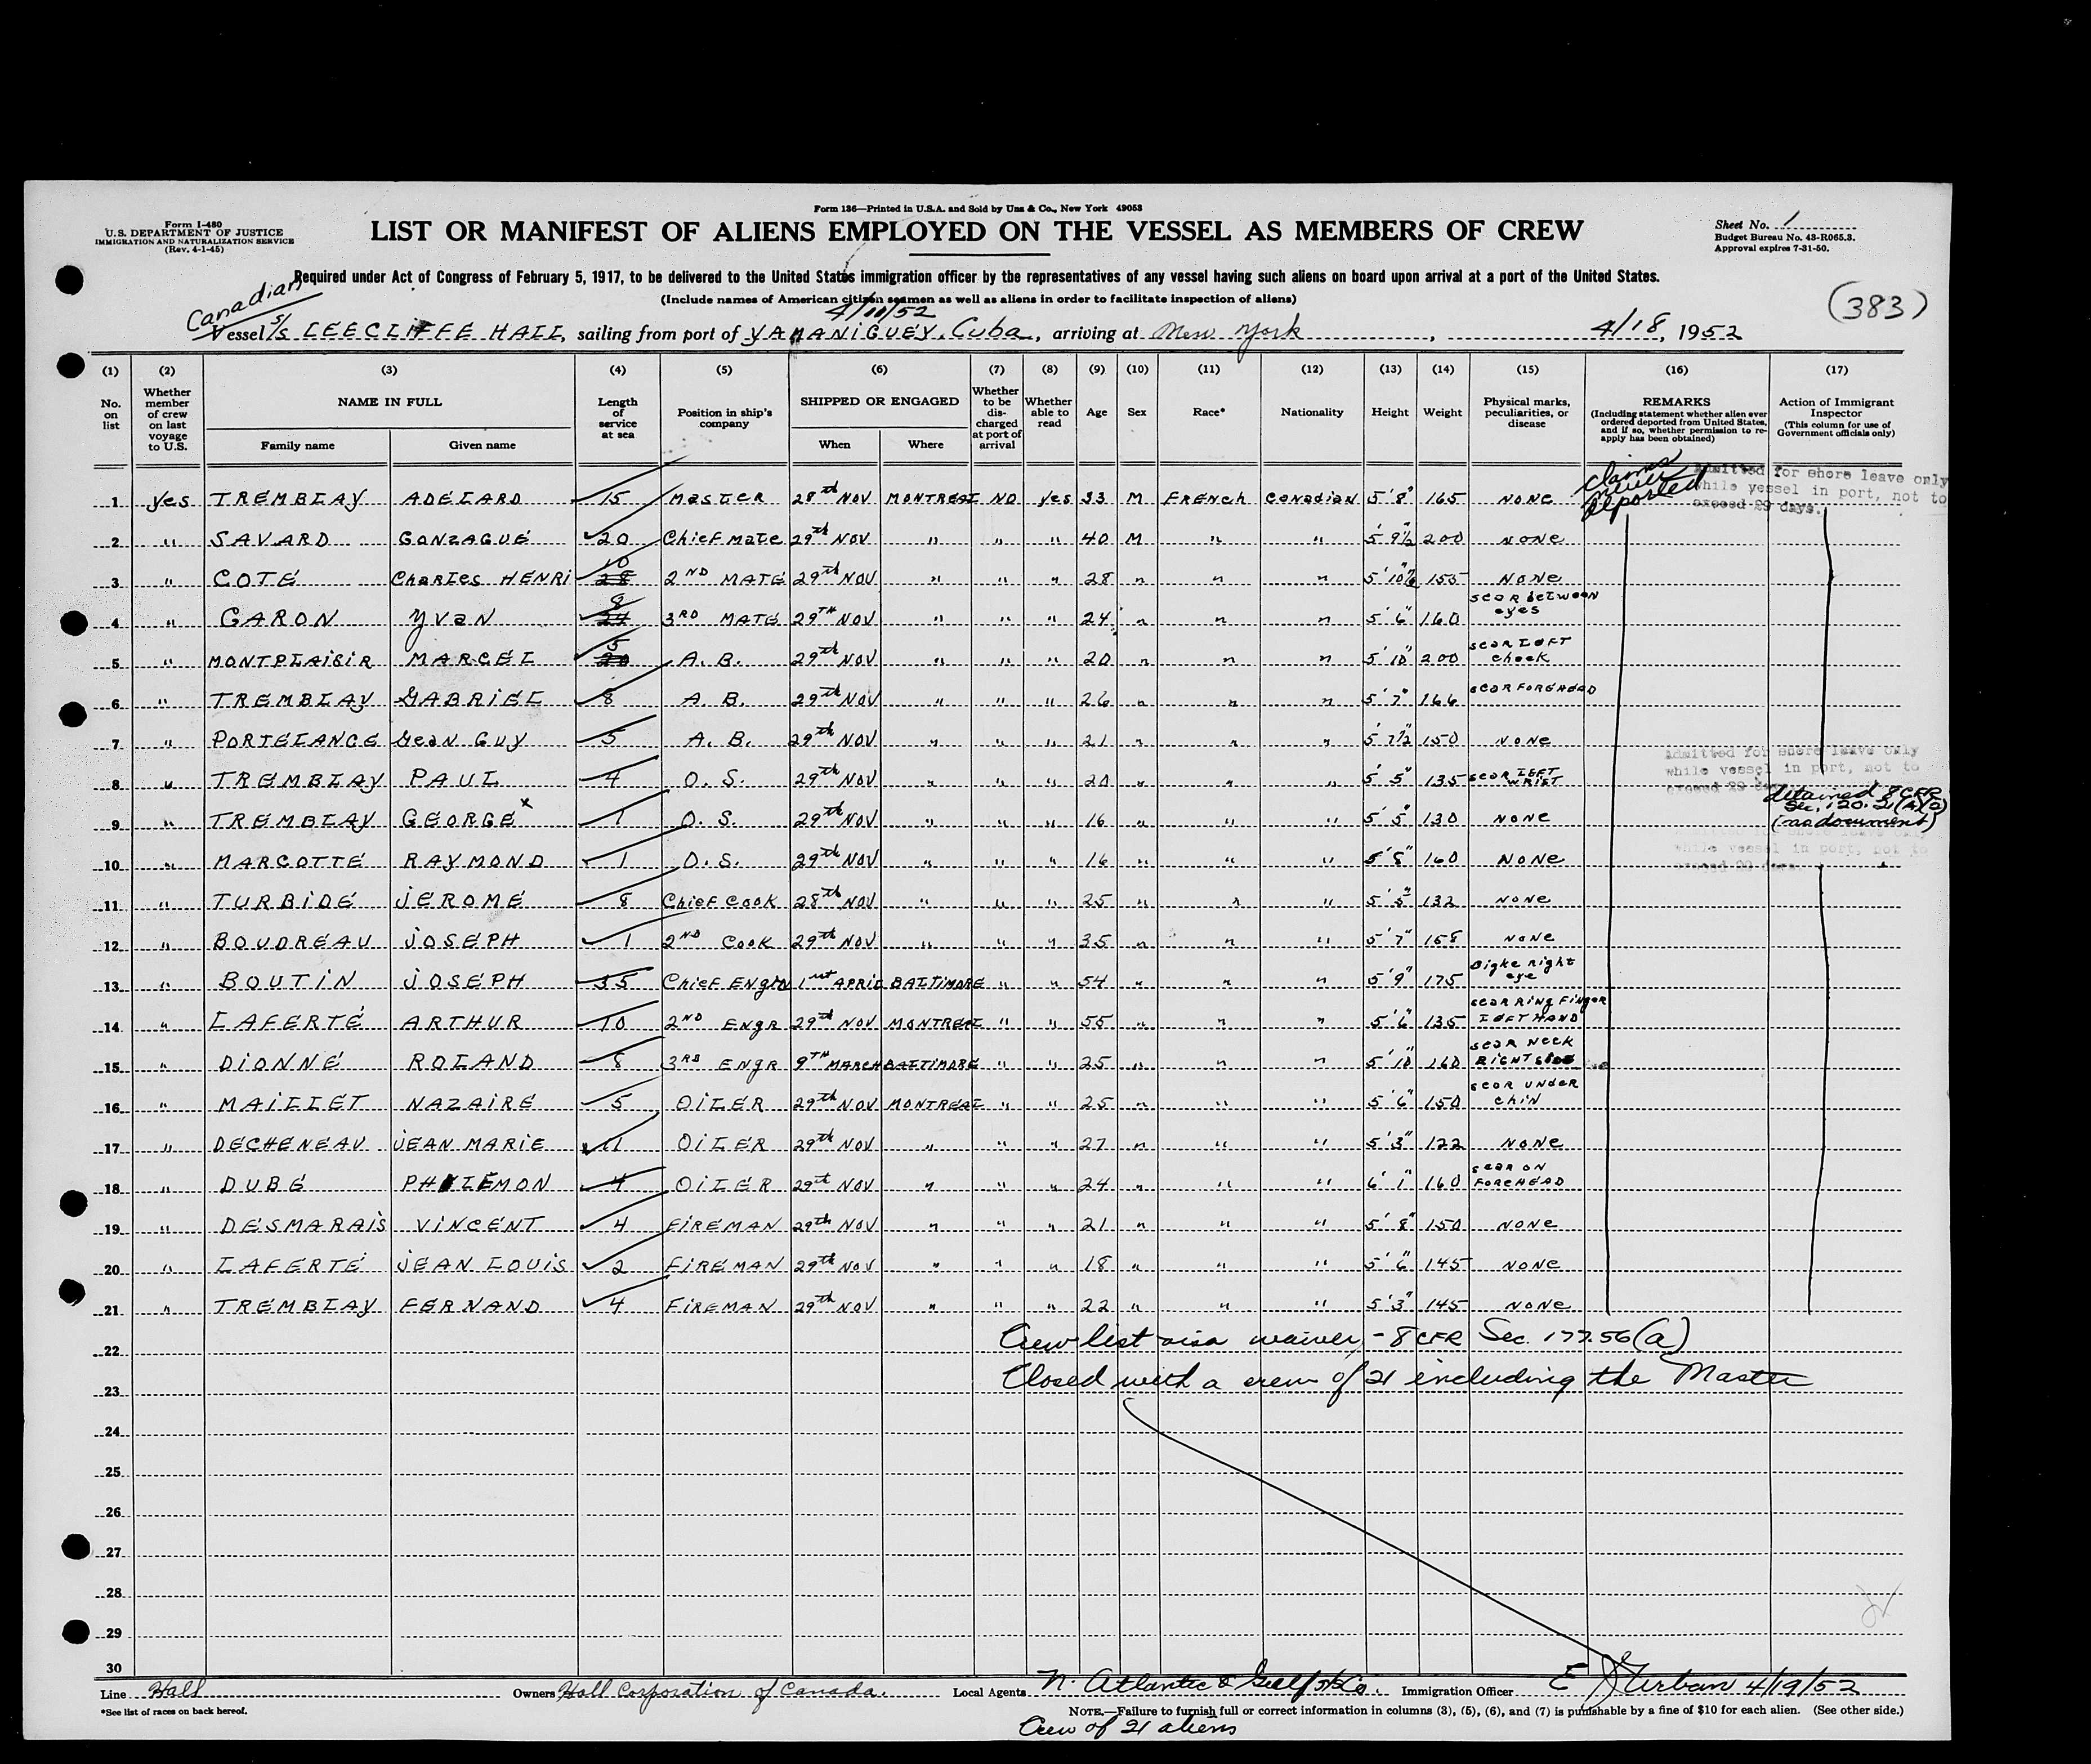 Form I-480
U.S. DEPARTMENT OF JUSTICE
IMMIGRATION AND NATURALIZATION SERVICE
(Rev. 4-1-45)
Form 136—Printed in U.S.A. and Sold by Unz & Co., New York 49053
LIST OR MANIFEST OF ALIENS EMPLOYED ON THE VESSEL AS MEMBERS OF CREW
Sheet No. 1
Budget Bureau No. 43-R065.3.
Approval expires 7-31-50.
Required under Act of Congress of February 5, 1917, to be delivered to the United States immigration officer by the representatives of any vessel having such aliens on board upon arrival at a port of the United States.
(Include names of American citizen seamen as well as aliens in order to facilitate inspection of aliens)
(383)
Canadian
4/10/52
Vessel S/S LEECLIFFE HALL, sailing from port of YAMANIGUEY, Cuba, arriving at New York, 4/18, 1952
(1) (2) (3) (4) (5) (6) (7) (8) (9) (10) (11) (12) (13) (14) (15) (16) (17)
No. on list
Whether member of crew on last voyage to U.S.
NAME IN FULL
Family name Given name
Length of service at sea
Position in ship's company
SHIPPED OR ENGAGED
When Where
Whether to be discharged at port of arrival
Whether able to read
Age Sex Race* Nationality Height Weight
Physical marks, peculiarities, or disease
REMARKS
(Including statement whether alien ever ordered deported from United States, and if so, whether permission to reapply has been obtained)
Action of Immigrant Inspector
(This column for use of Government officials only)
claims never deported
Admitted for shore leave only
while vessel in port, not to
exceed 29 days.
1 yes TREMBLAY ADELARD 15 MASTER 28th NOV MONTREAL NO yes 33 M FRENCH CANADIAN 5'8" 165 NONE
2 " SAVARD GONZAGUE 20 Chief Mate 29th NOV " " " 40 M " " 5'9½ 200 NONE
3 " COTE Charles HENRI 28 10 2ND MATE 29th NOV " " " 28 " " " 5'10½ 155 NONE
4 " GARON Yvan 24 8 3RD MATE 29TH NOV " " " 24 " " " 5'6" 160 scar between eyes
5 " MONTPLAISIR MARCEL 20 5 A.B. 29th NOV " " " 20 " " " 5'10" 200 scar left cheek
6 " TREMBLAY GABRIEL 8 A.B. 29th NOV " " " 26 " " " 5'7" 166 scar FOREHEAD
7 " PORTELANCE Jean Guy 5 A.B. 29th NOV " " " 21 " " " 5'7½ 150 NONE
Admitted for shore leave only
while vessel in port, not to
exceed 29 days.
8 " TREMBLAY PAUL 4 O.S. 29th NOV " " " 20 " " " 5'5" 135 scar LEFT WRIST
detained 8 CFR
Sec. 120.21(A)(3)
(no document)
9 " TREMBLAY GEORGE x 1 O.S. 29th NOV " " " 16 " " " 5'5" 130 NONE
Admitted for shore leave only
while vessel in port, not to
exceed 29 days.
10 " MARCOTTE RAYMOND 1 O.S. 29th NOV " " " 16 " " " 5'8" 160 NONE
11 " TURBIDE JEROME 8 Chief Cook 28th NOV " " " 25 " " " 5'5" 132 NONE
12 " BOUDREAU JOSEPH 1 2ND Cook 29th NOV " " " 35 " " " 5'7" 158 NONE
13 " BOUTIN JOSEPH 35 Chief Engin 1st APRIL BALTIMORE " " 54 " " " 5'9" 175 right eye
14 " LAFERTÉ ARTHUR 10 2ND Engr 29th NOV MONTREAL " " 55 " " " 5'6" 135 scar Ring Finger LEFT HAND
15 " DIONNE ROLAND 8 3RD ENgR 9TH MARCH BALTIMORE " " 25 " " " 5'10" 160 scar Neck RIGHT side
16 " MAILLET NAZAIRE 5 OILER 29th NOV MONTREAL " " 25 " " " 5'6" 150 scar under chin
17 " DECHENEAU JEAN MARIE 11 OILER 29th NOV " " " 27 " " " 5'3" 122 NONE
18 " DUBÉ PHILEMON 4 OILER 29th NOV " " " 24 " " " 6'1" 160 scar ON FOREHEAD
19 " DESMARAIS VINCENT 4 FIREMAN 29th NOV " " " 21 " " " 5'8" 150 NONE
20 " LAFERTÉ JEAN LOUIS 2 FIREMAN 29th NOV " " " 18 " " " 5'6" 145 NONE
21 " TREMBLAY FERNAND 4 FIREMAN 29th NOV " " " 22 " " " 5'3" 145 NONE
22 Crew list visa waiver - 8 CFR Sec. 177.56(a)
23 Closed with a crew of 21 including the Master
24
25
26
27
28
29
30
Line Hall Owners Hall Corporation of Canada. Local Agents N. Atlantic & Gulf S/S Co. Immigration Officer E J Urban 4/19/52
*See list of races on back hereof.
NOTE.—Failure to furnish full or correct information in columns (3), (5), (6), and (7) is punishable by a fine of $10 for each alien. (See other side.)
Crew of 21 aliens